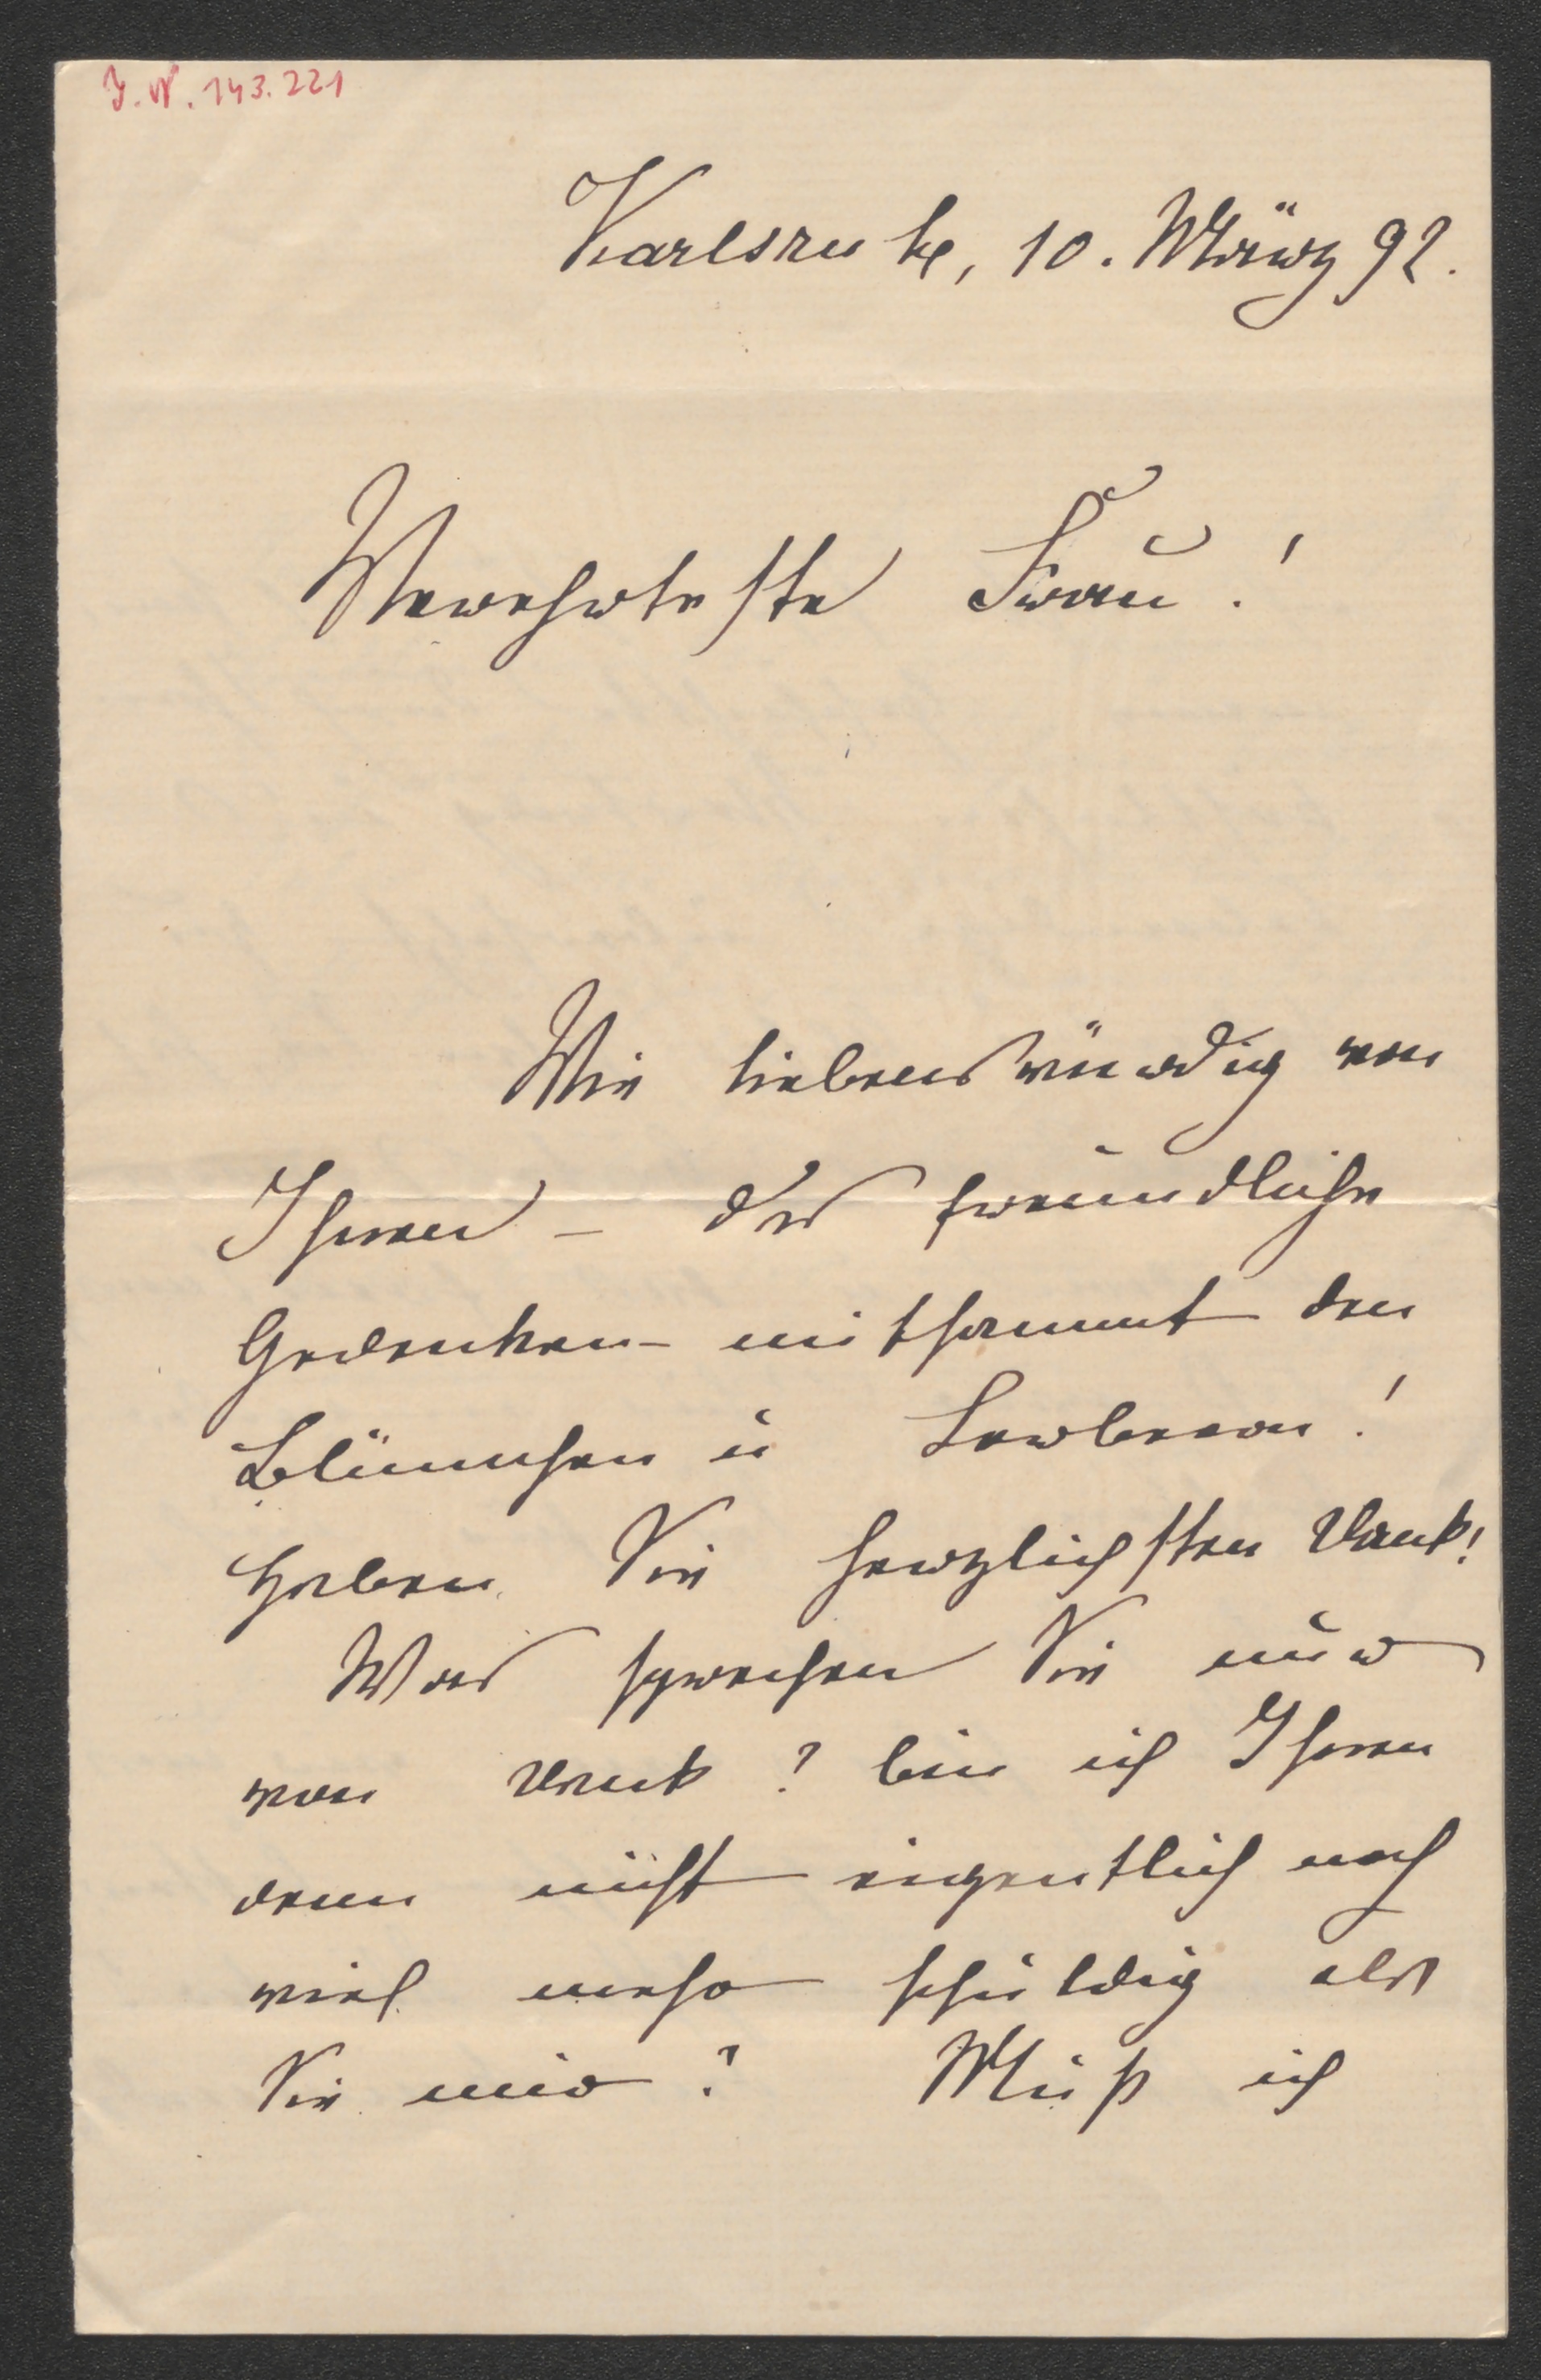 J.N. 143.221
Karlsruhe, 10. März 92.
Verehrteste Frau!
Wie liebenswürdig von
Ihnen – das freundliche
Gedenken mitsammt den
Blümchen u Lorbeeren!
Haben Sie herzlichsten Dank!
Was sprechen Sie nur
von Dank? bin ich Ihnen
denn nicht eigentlich noch
viel mehr schuldig als
Sie mir? Muß ich